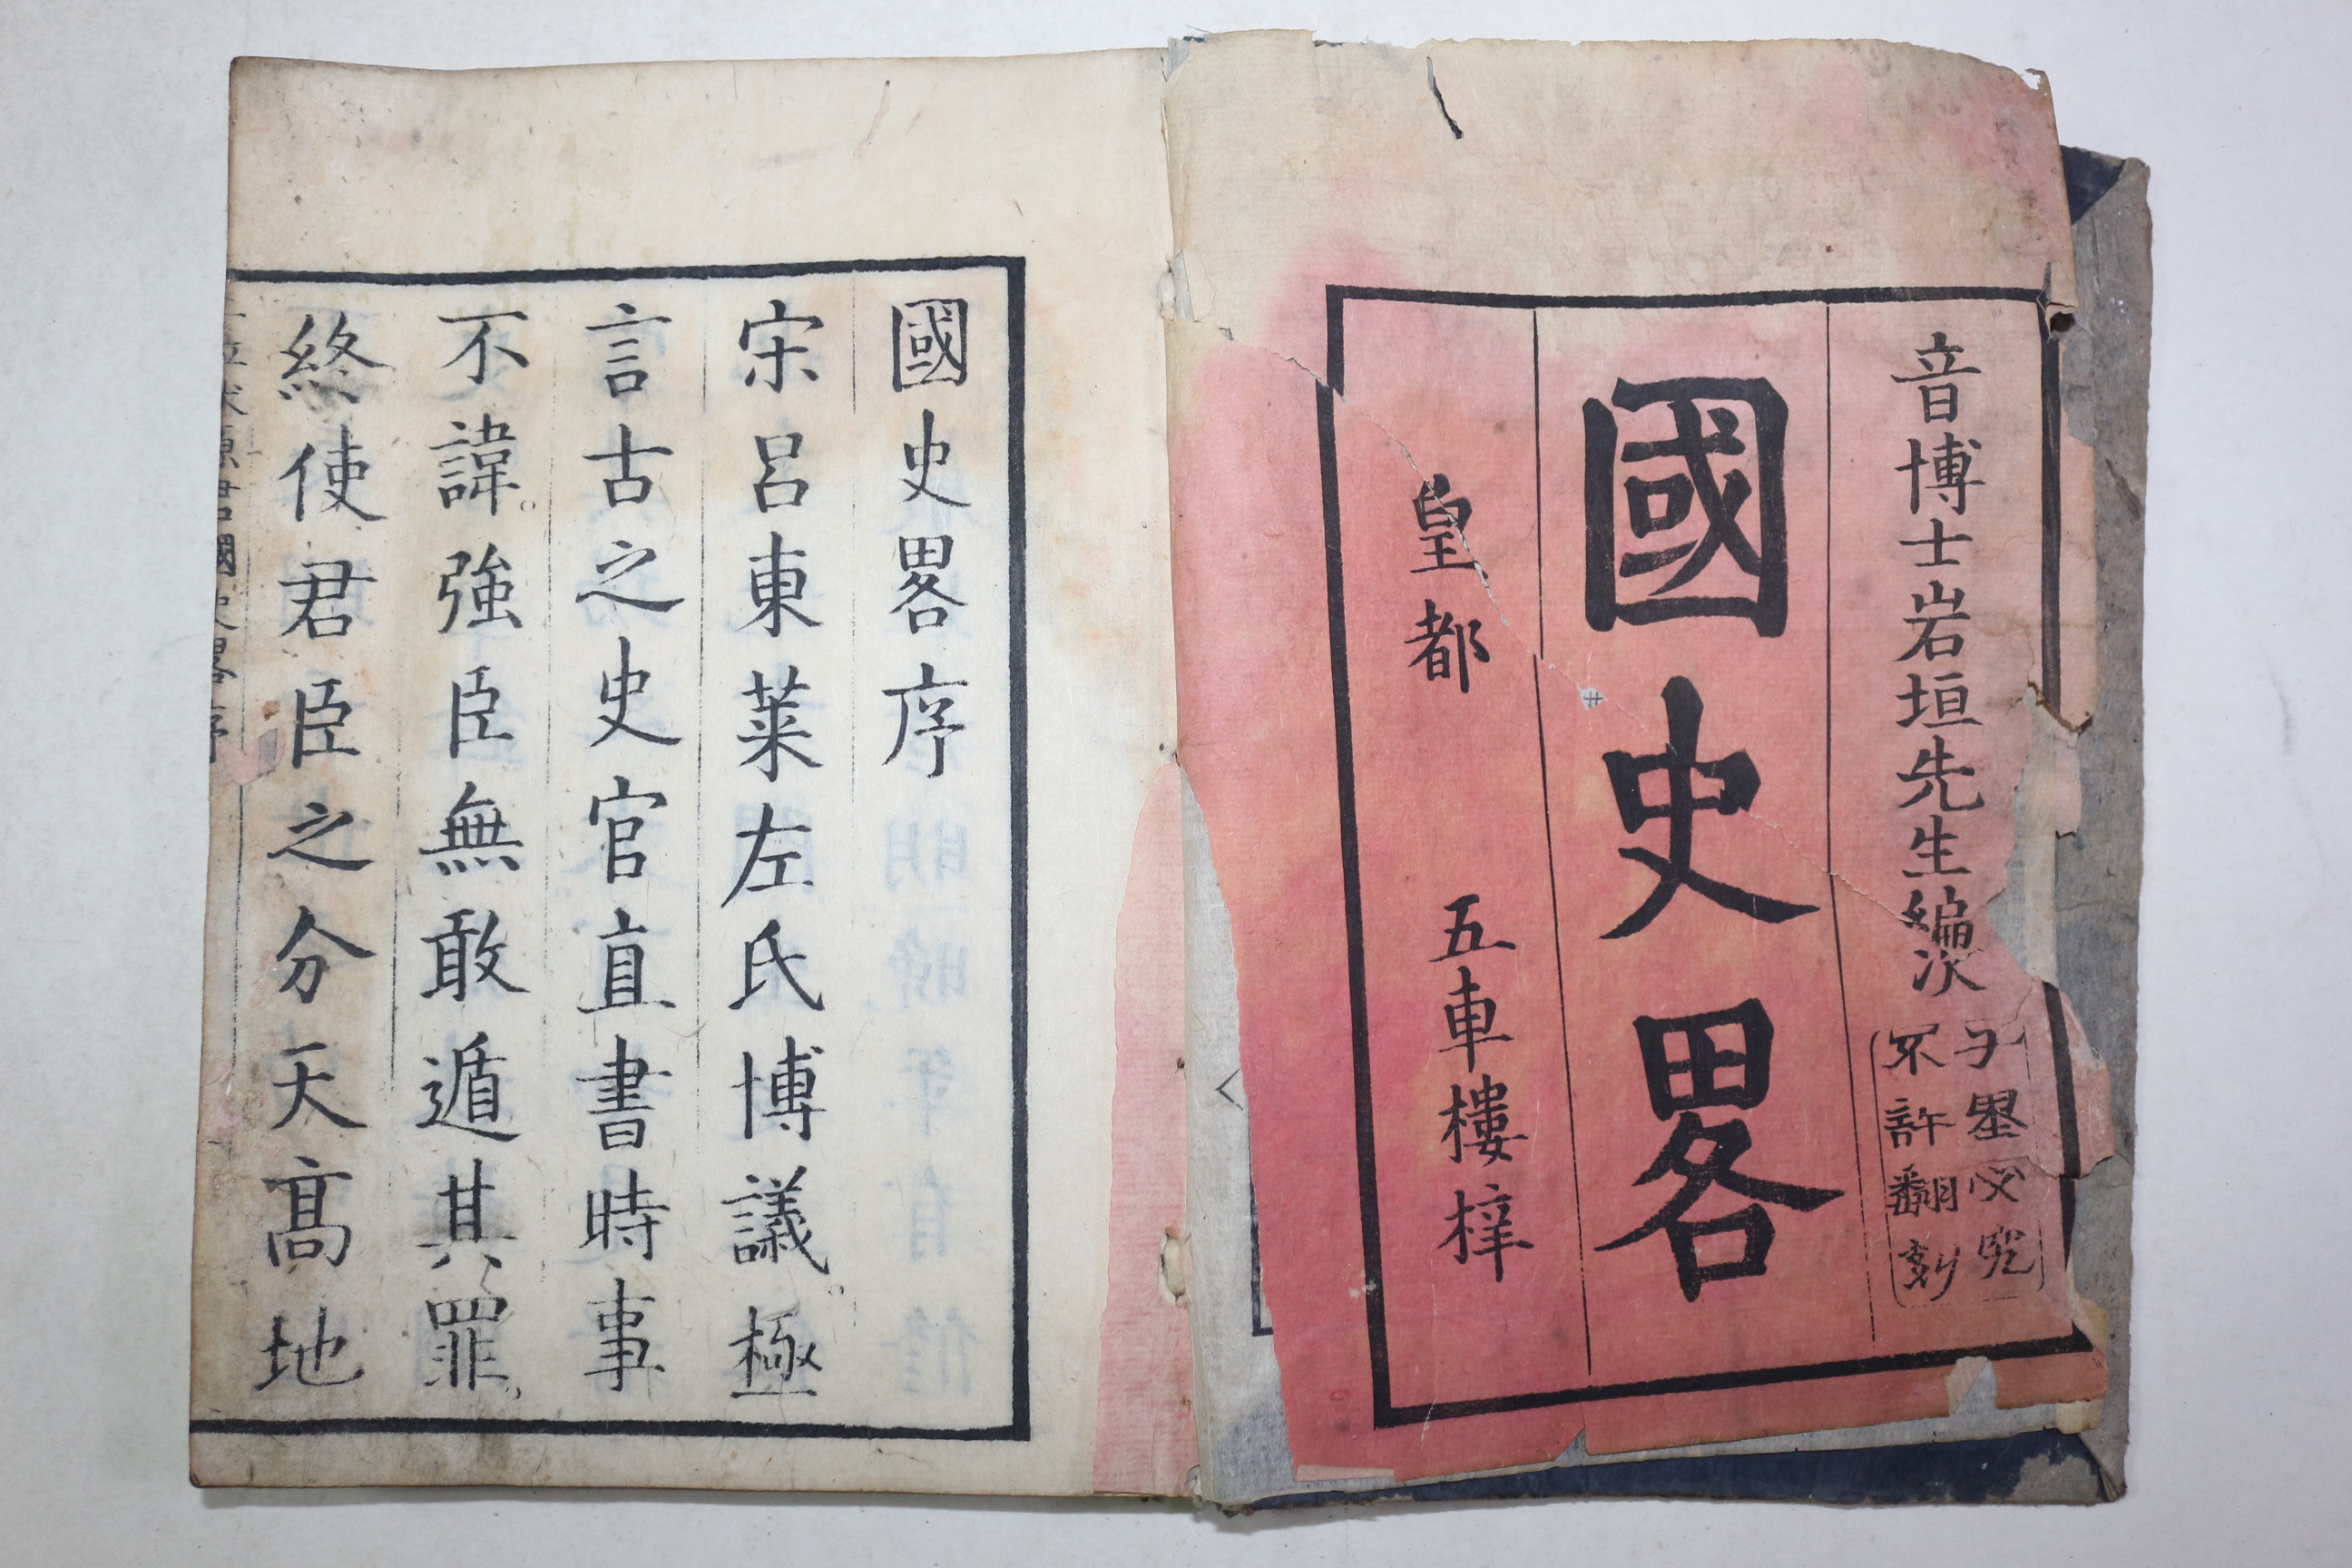 音博士岩垣先生編次
不許翻刻
國史畧
皇都 五車樓梓
國史畧序
宋呂東萊左氏博議。極
言古之史官直書時事
不諱。強臣無敢遁其罪。
終使君臣之分天高地